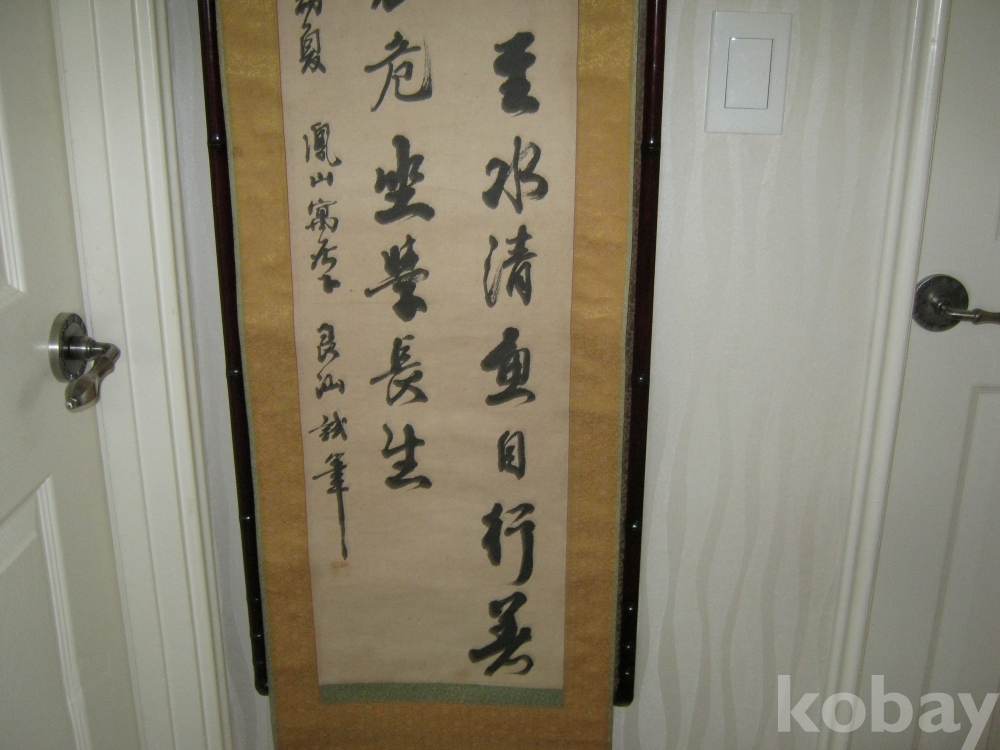 至水清魚自行
危坐學長生
夏 鳳山寓居 艮汕試筆
kobay